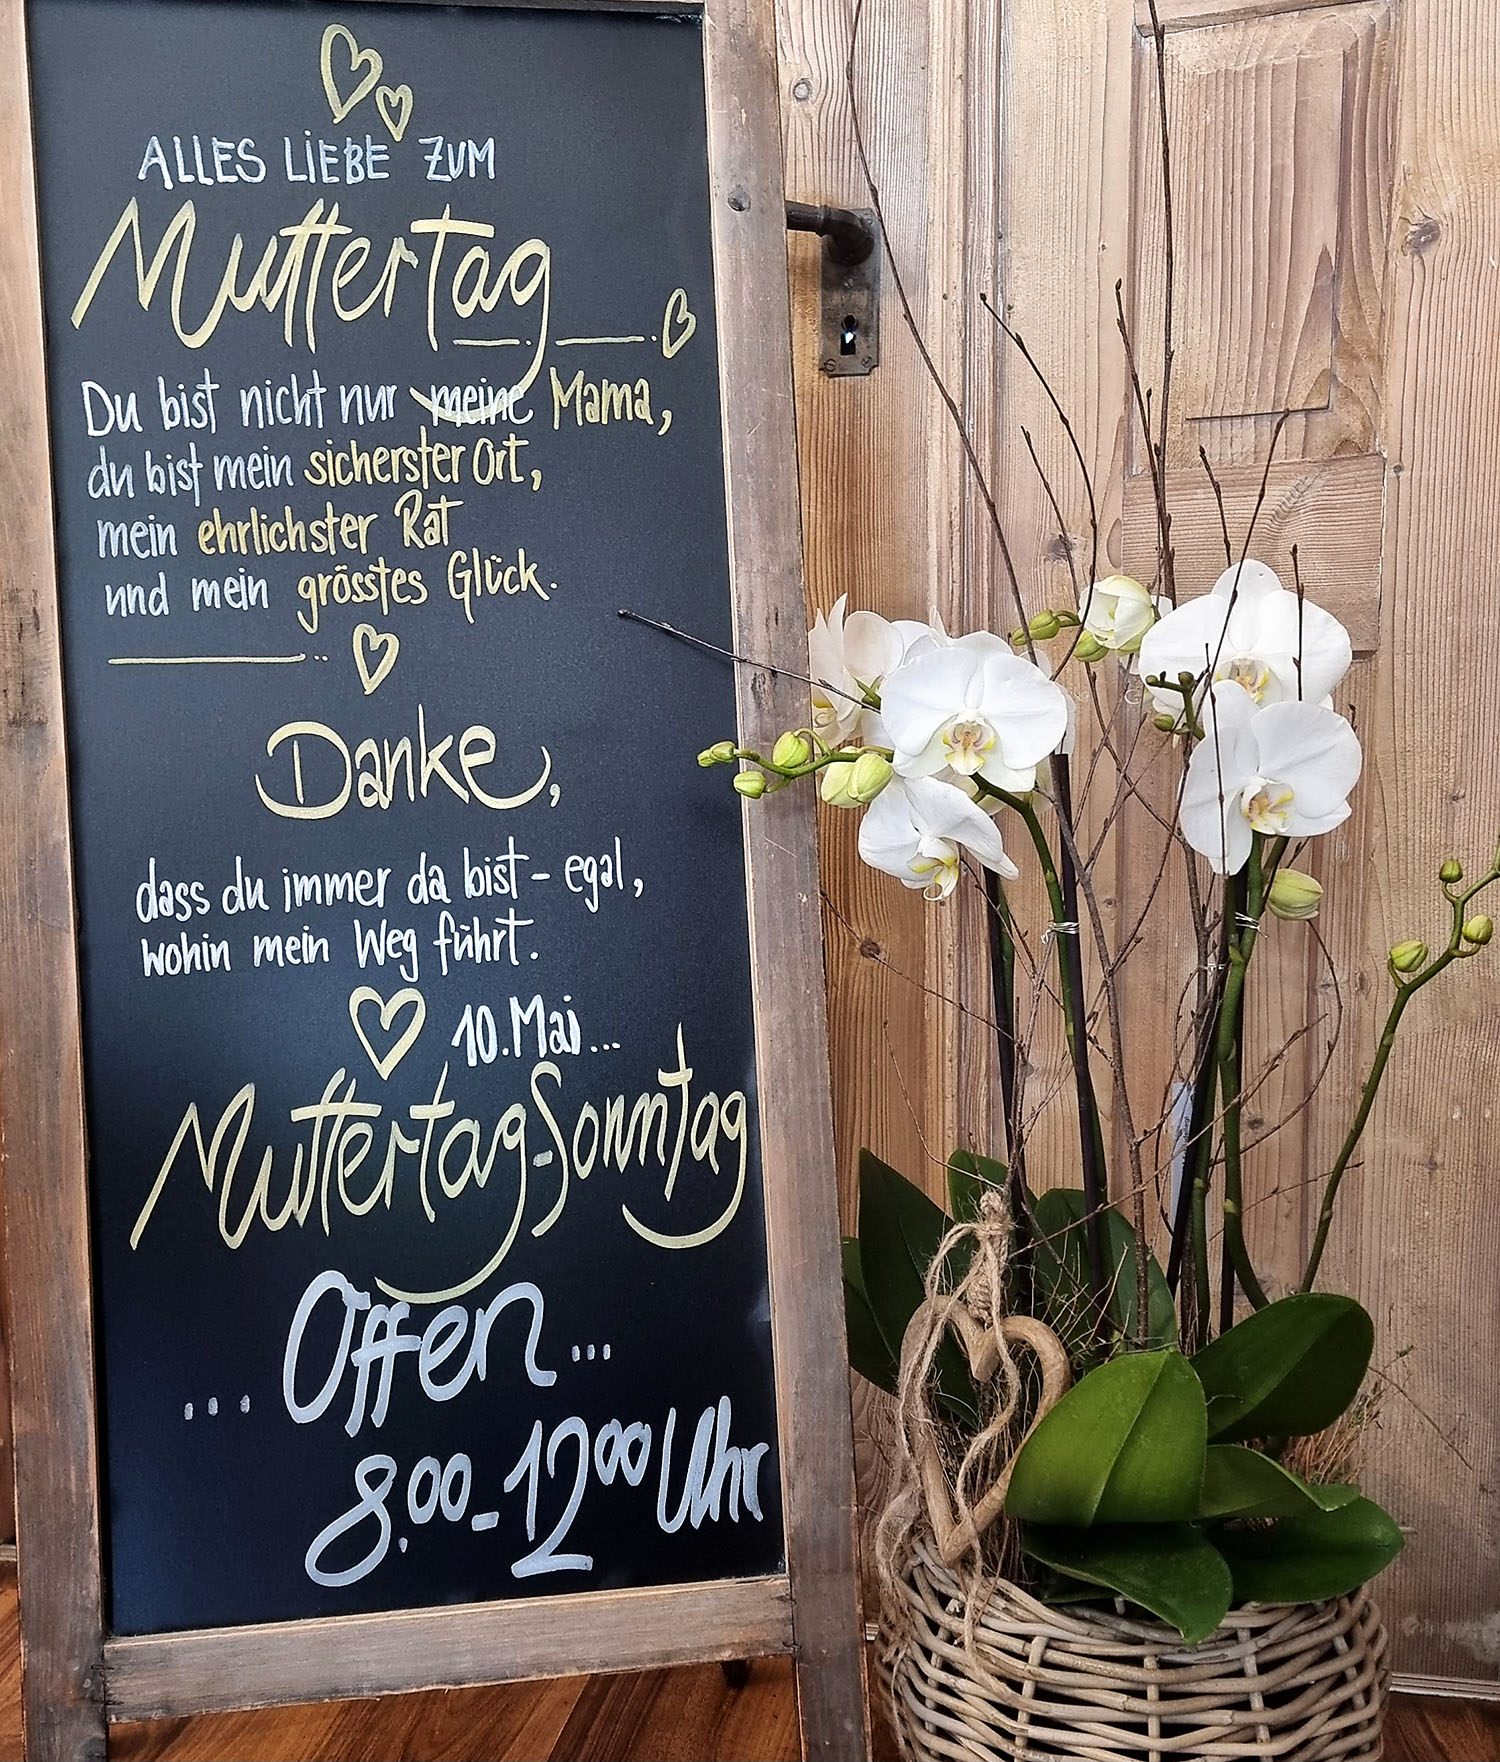 ALLES LIEBE ZUM
Muttertag
Du bist nicht nur meine Mama,
du bist mein sicherster Ort,
mein ehrlichster Rat
und mein grösstes Glück.
Danke,
dass du immer da bist - egal,
wohin mein Weg führt.
10. Mai...
Muttertag-Sonntag
Offen...
... 8.00 - 12 00 Uhr